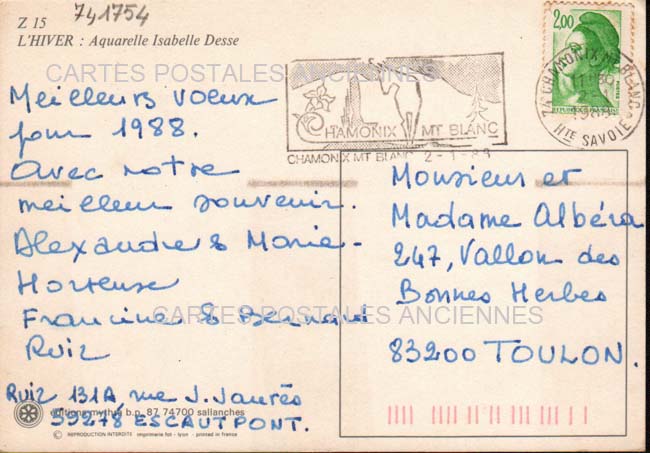 741754
Z 15
L'HIVER : Aquarelle Isabelle Desse
CARTES POSTALES ANCIENNES
Meilleurs voeux
pour 1988.
Avec notre
meilleur souvenir.
Alexandre & Marie-
Hortense
Francine & Bernard
Ruiz
Ruiz 131A, rue J. Jaurès
59278 ESCAUTPONT.
éditions mythra b.p. 87 74700 sallanches
© REPRODUCTION INTERDITE imprimerie fot - lyon - printed in france
2,00
CHAMONIX MT BLANC
CHAMONIX MT BLANC 2-1-88
74 CHAMONIX MT BLANC
HTE SAVOIE
Monsieur et
Madame Albéra
247, Vallon des
Bonnes Herbes
CARTES POSTALES ANCIENNES
83200 TOULON.